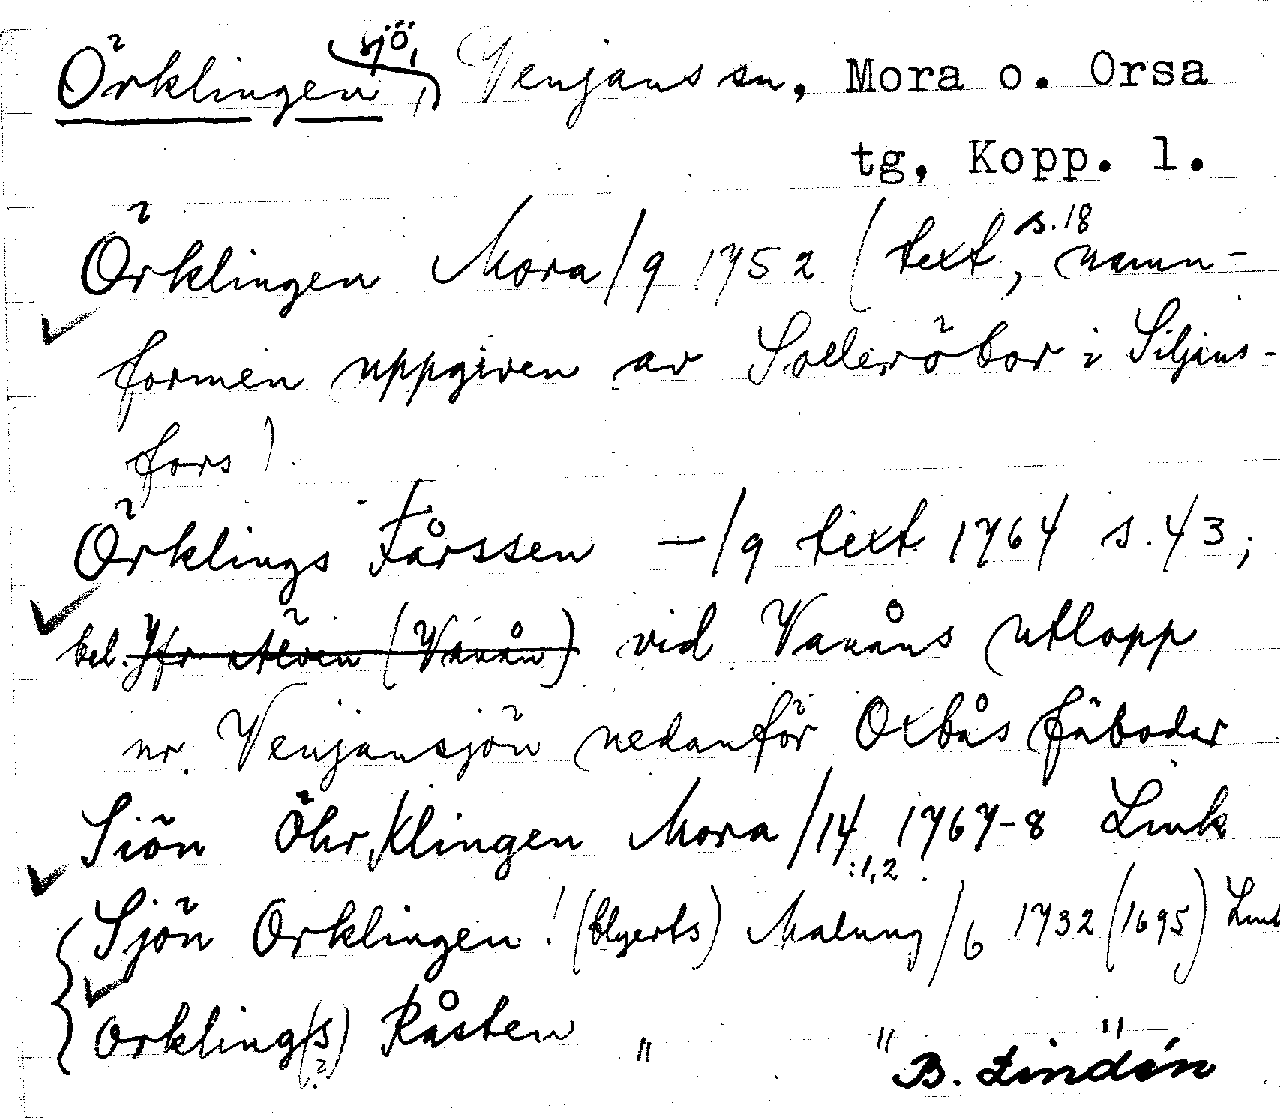 Örklingen, sjö, Venjans sn, Mora o. Orsa
tg, Kopp. l.
Örklingen Mora/9 1752 (text, s.18 namn-
formen uppgiven av Solleröbor i Siljans-
fors).
Örklings Fårssen —/9 text 1764 s.43;
bel. Jfr älven (Vanån) vid Vanåns utlopp
ur Venjansjön nedanför Oxbås fäbodar
Siön Öhr Klingen Mora/14:1,2 1767-8 Link
Sjön Orklingen! (blyerts) Malung/6 1732 (1695) Link
Orkling(s) Råsten " " "
(?)
B. Lindén